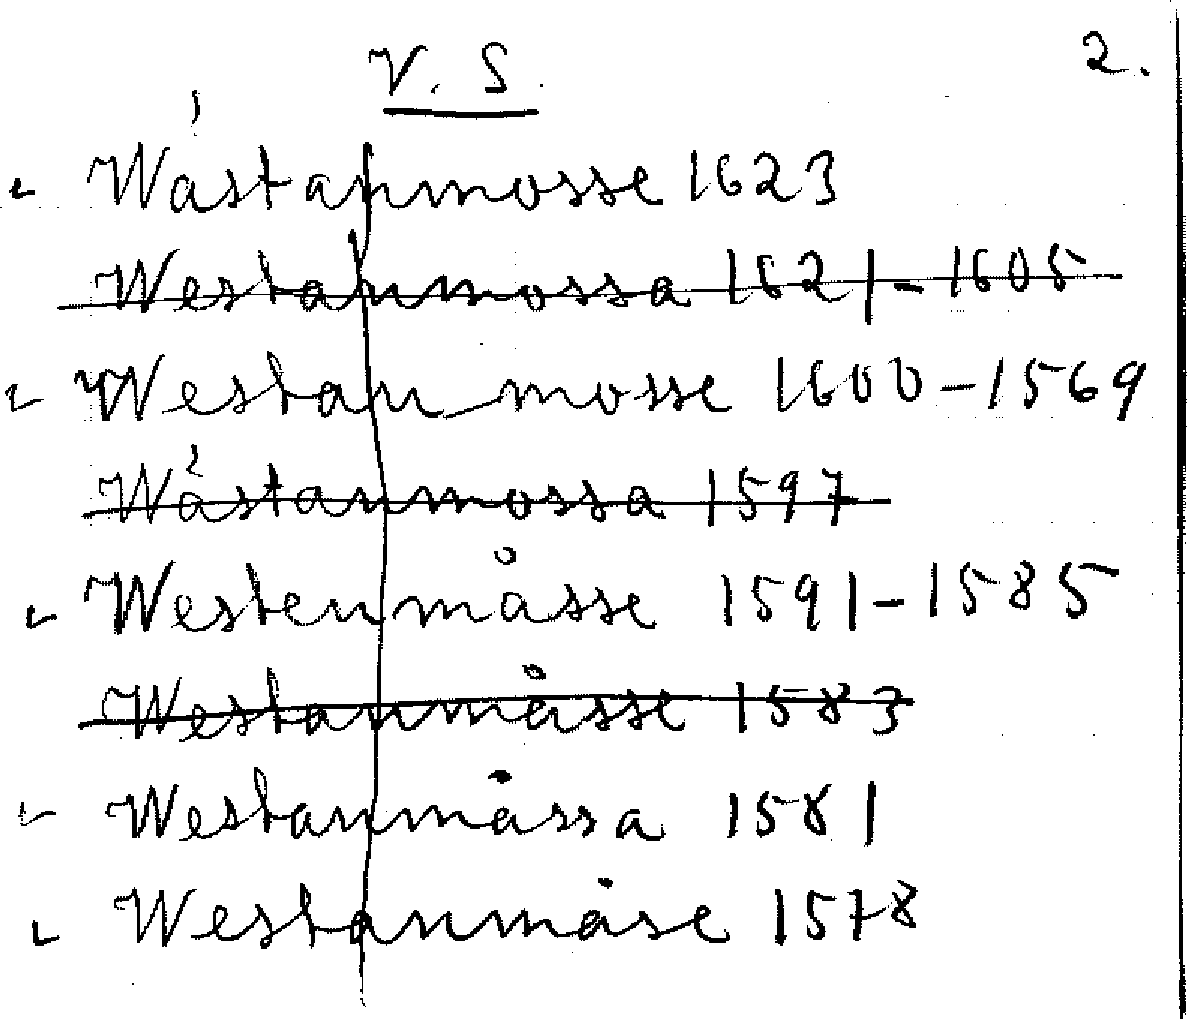 V. S. 2.
Wástanmosse 1623
Westanmossa 1621-1605
Westan mosse 1600-1569
Wástanmossa 1597
Westenmåsse 1591-1585
Westanmåsse 1583
Westanmåssa 1581
Westanmåse 1578